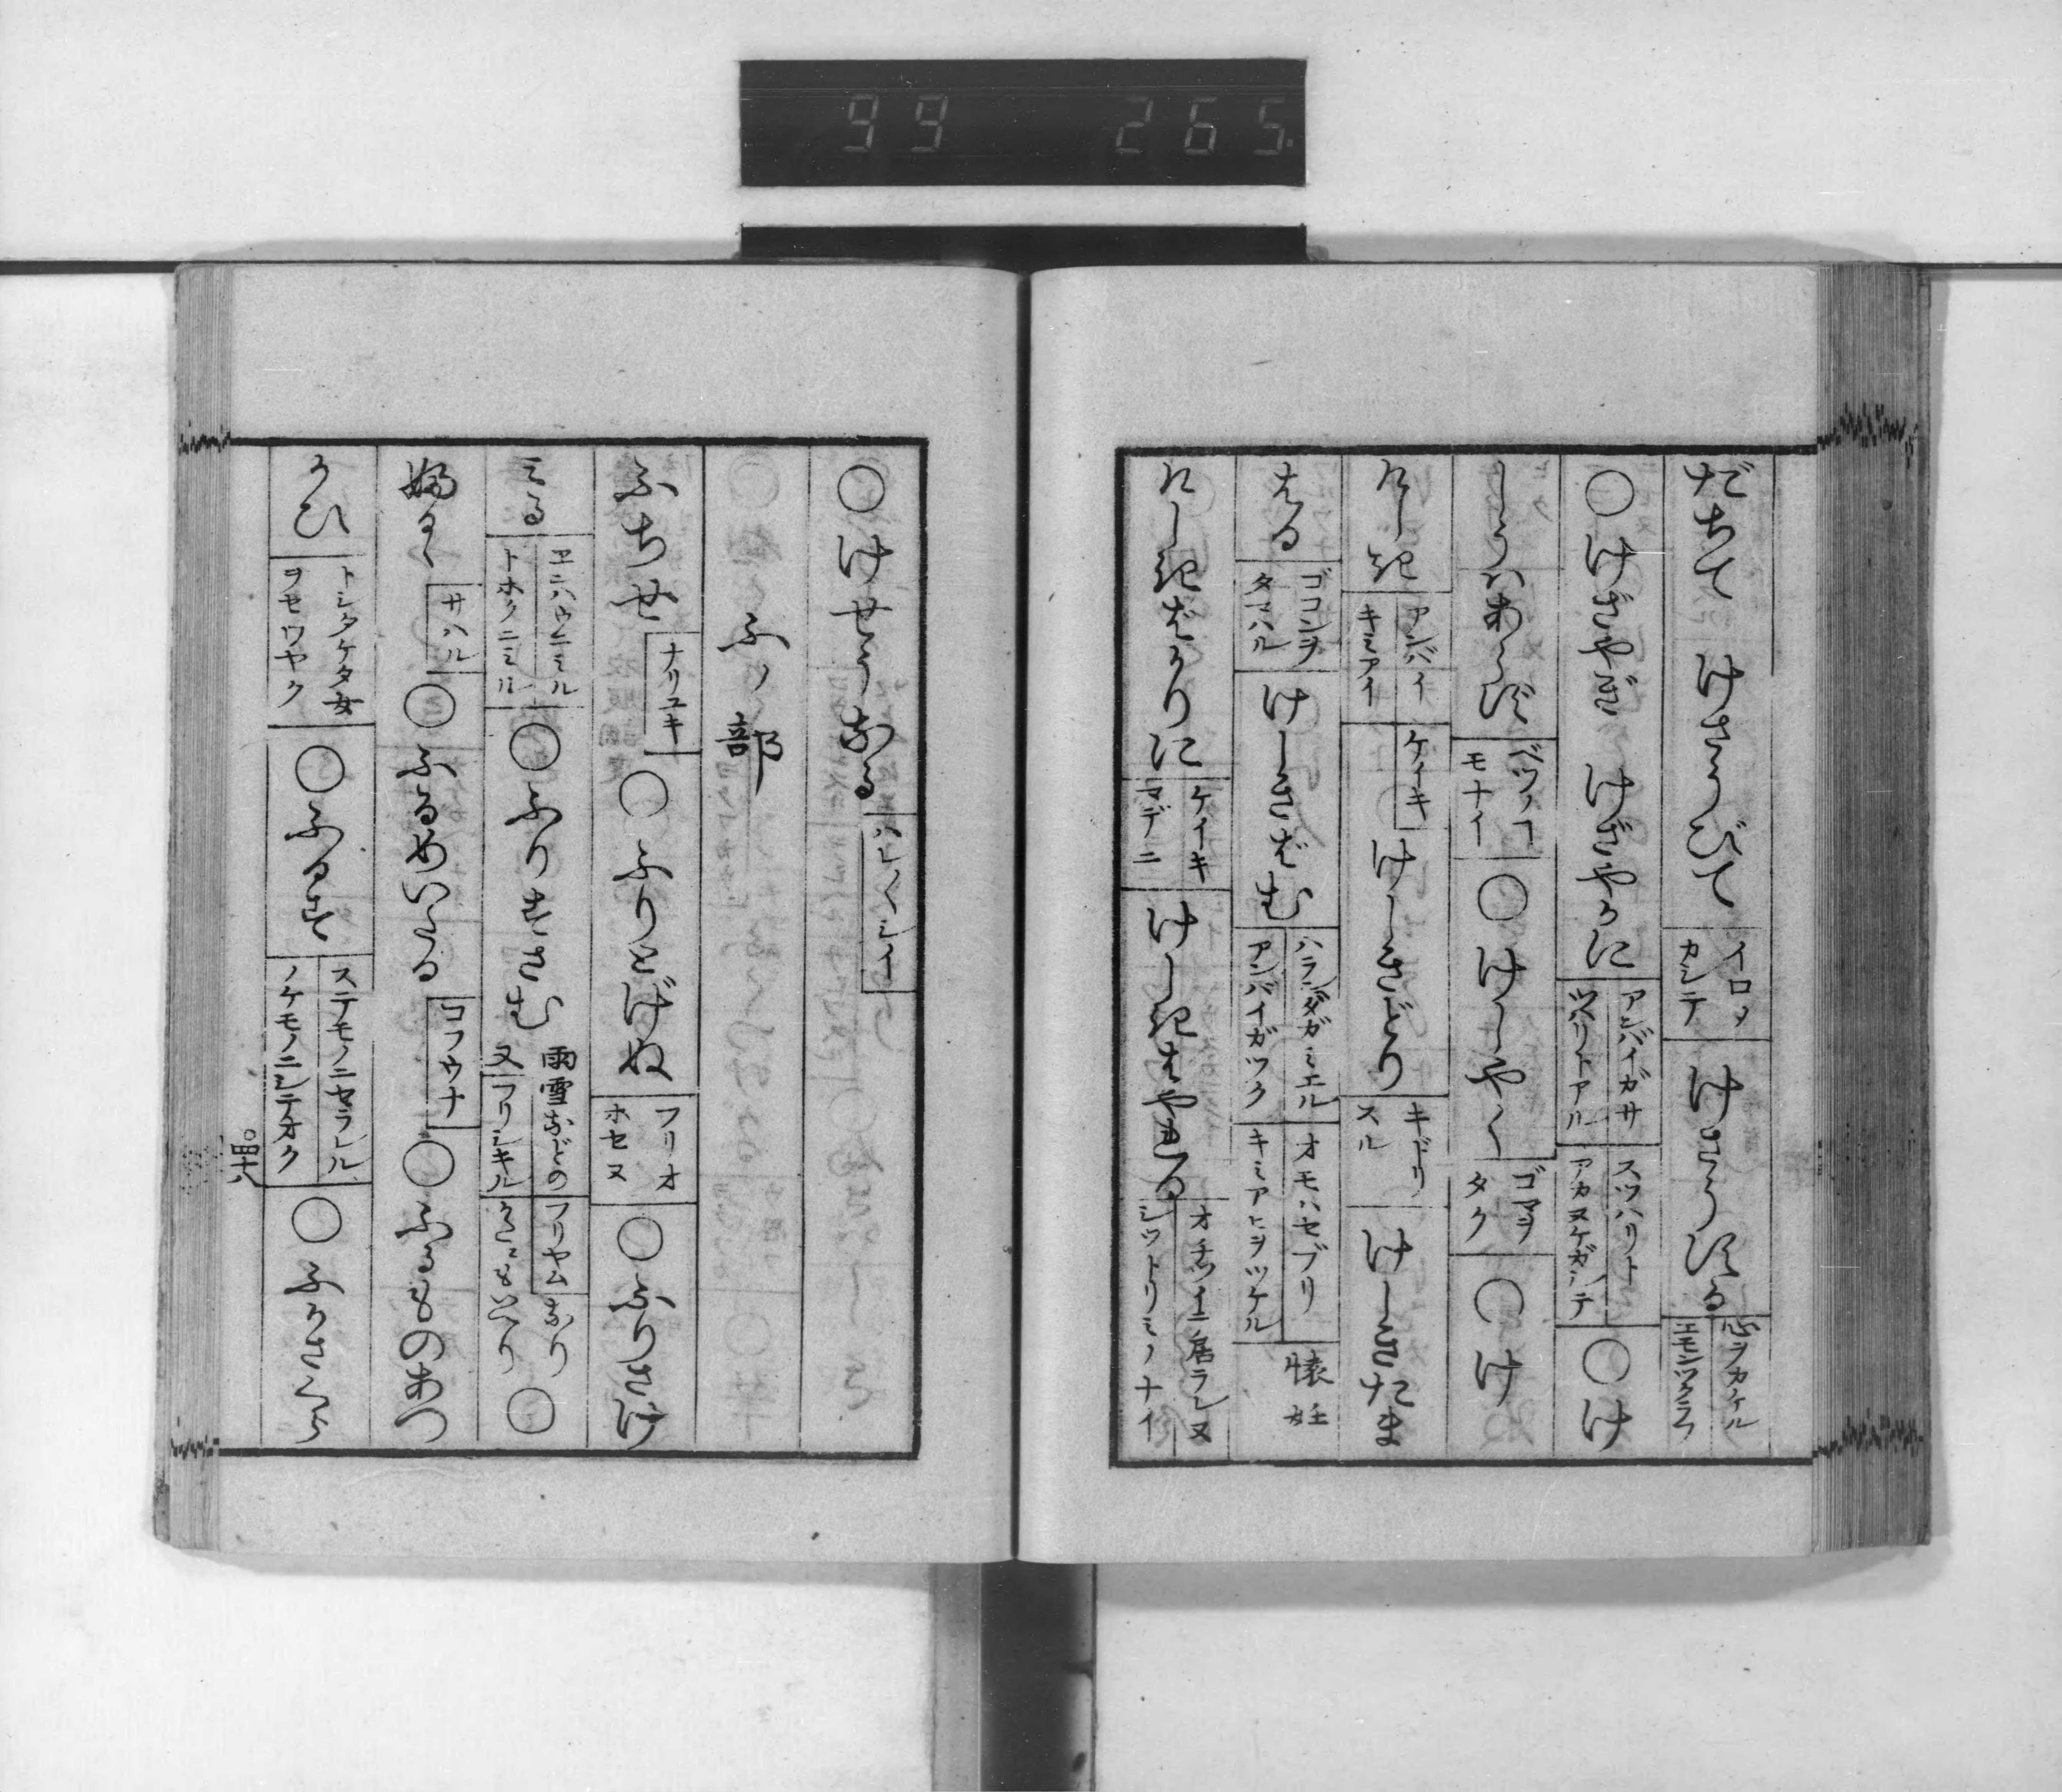 99 265
だちて けさうびて イロメカシテ けさうはる 心ヲカケル エモンツクラフ
○けざやぎ けざやかに アンバイガサツパリトアル スツハリトアカヌケガシテ ○け
しうはあらず ベツノコモナイ ○けしやく ゴマヲタク ○け
はし紀 アンバイ キミアイ ケイキ けしきどり キドリスル けしきたま
はる ゴコンヲタマハル けしきばむ ハランダガミエル アンバイガツク オモハセブリ キミアヒヲツケル 懐妊
けし紀ばかりに ケイキマデニ けし紀はやれる オチツイニ居ラレヌ シツトリミノナイ
○けせうなる ハレ〳〵シイ
ふノ部
ふちせ ナリユキ ○ふりとげぬ フリオホセヌ ○ふりさけ
みる ヱンハウニミル トホクニミル ○ふりすさむ 雨雪などの フリヤム なり 又 フリシキル
婦る サハル ○ふるめいたる コフウナ ○ふるものあつ
かひ トシタケタ女ヲセワヤク ○ふるす ステモノニセラレル ノケモノニシテオク ○ふかさくら
四十八